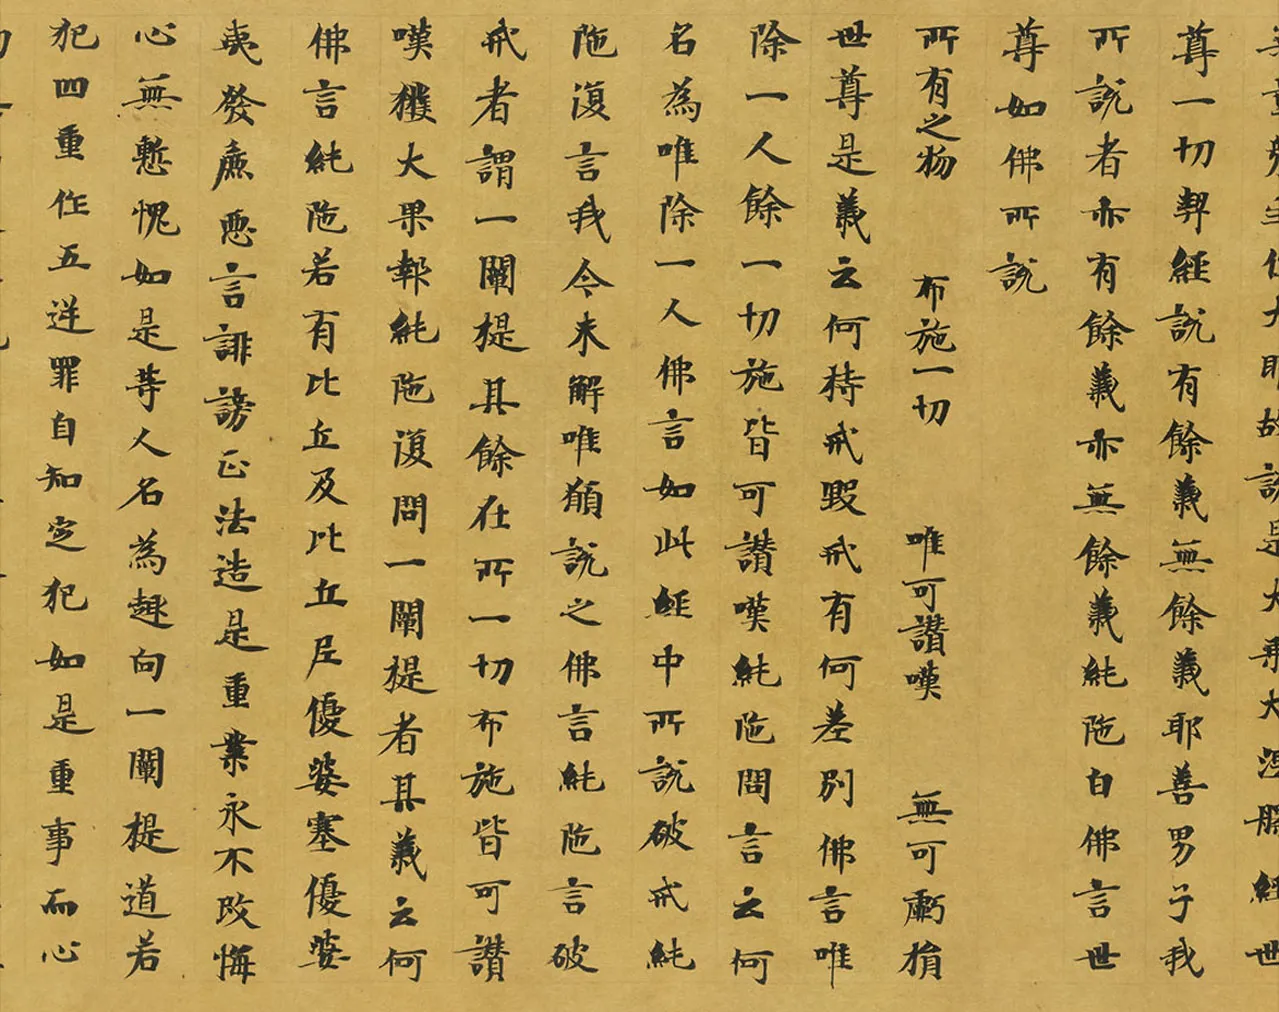 故說是大乘大涅槃經世
尊一切契經說有餘義無餘義耶善男子我
所說者亦有餘義亦無餘義純陁白佛言世
尊如佛所說
所有之物　布施一切　唯可讃嘆　無可虧損
世尊是義云何持戒毀戒有何差別佛言唯
除一人餘一切施皆可讃嘆純陁問言云何
名為唯除一人佛言如此經中所說破戒純
陁復言我今未解唯願說之佛言純陁言破
戒者謂一闡提其餘在所一切布施皆可讃
嘆獲大果報純陁復問一闡提者其義云何
佛言純陁若有比丘及比丘尼優婆塞優婆
夷發麁惡言誹謗正法造是重業永不改悔
心無慙愧如是等人名為趣向一闡提道若
犯四重作五逆罪自知定犯如是重事而心